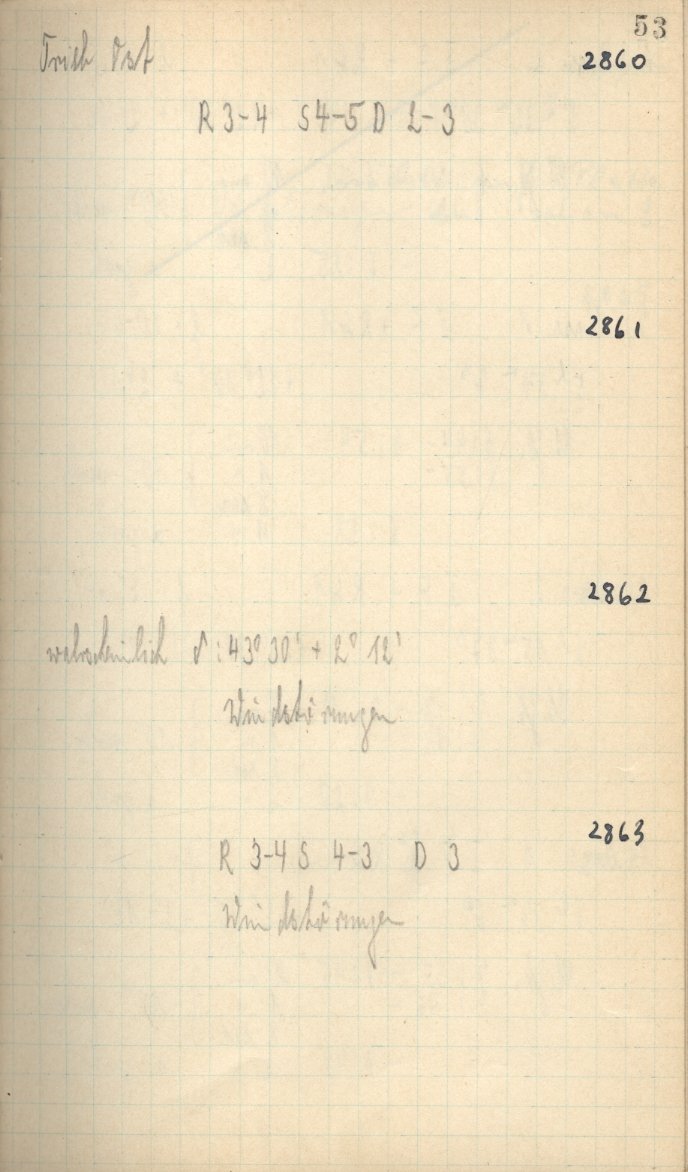 53
Trieb Ost 2860
R 3-4 S 4-5 D 2-3
2861
2862
wahrscheinlich δ: 43° 30' + 2° 12'
Windstörungen
2863
R 3-4 S 4-3 D 3
Windstörungen